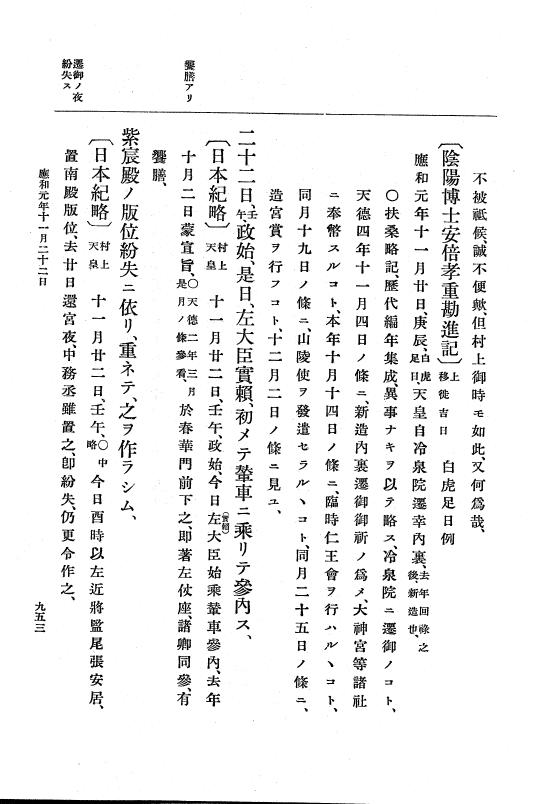 不被祗候、誠不便歟、但村上御時モ如此、又何爲哉、
〔陰陽博士安倍孝重勘進記〕上 移徙吉日 白虎足日例
應和元年十一月廿日、庚辰、白虎足日、天皇自冷泉院遷幸內裏、去年回祿之後、新造也、
○扶桑略記、歷代編年集成、異事ナキヲ以テ略ス、冷泉院ニ遷御ノコト、
天德四年十一月四日ノ條ニ、新造內裏遷御御祈ノ爲メ、大神宮等諸社
ニ奉幣スルコト、本年十月十四日ノ條ニ、臨時仁王會ヲ行ハルヽコト、
同月十九日ノ條ニ、山陵使ヲ發遣セラルヽコト、同月二十五日ノ條ニ、
造宮賞ヲ行フコト、十二月二日ノ條ニ見ユ、
二十二日、壬午、政始、是日、左大臣實賴、初メテ輦車ニ乘リテ參內ス、
〔日本紀略〕村上天皇 十一月廿二日、壬午、政始、今日左大臣(實賴)始乘輦車參內、去年
十月二日蒙宣旨、○天德二年三月是月ノ條參看、於春華門前下之、卽著左仗座、諸卿同參、有
饗膳、
饗膳アリ
紫宸殿ノ版位紛失ニ依リ、重ネテ、之ヲ作ラシム、
〔日本紀略〕村上天皇 十一月廿二日、壬午、○中略 今日酉時以左近將監尾張安居、
置南殿版位、去廿日還宮夜、中務丞雖置之、卽紛失、仍更令作之、
遷御ノ夜紛失ス
應和元年十一月二十二日
九五三